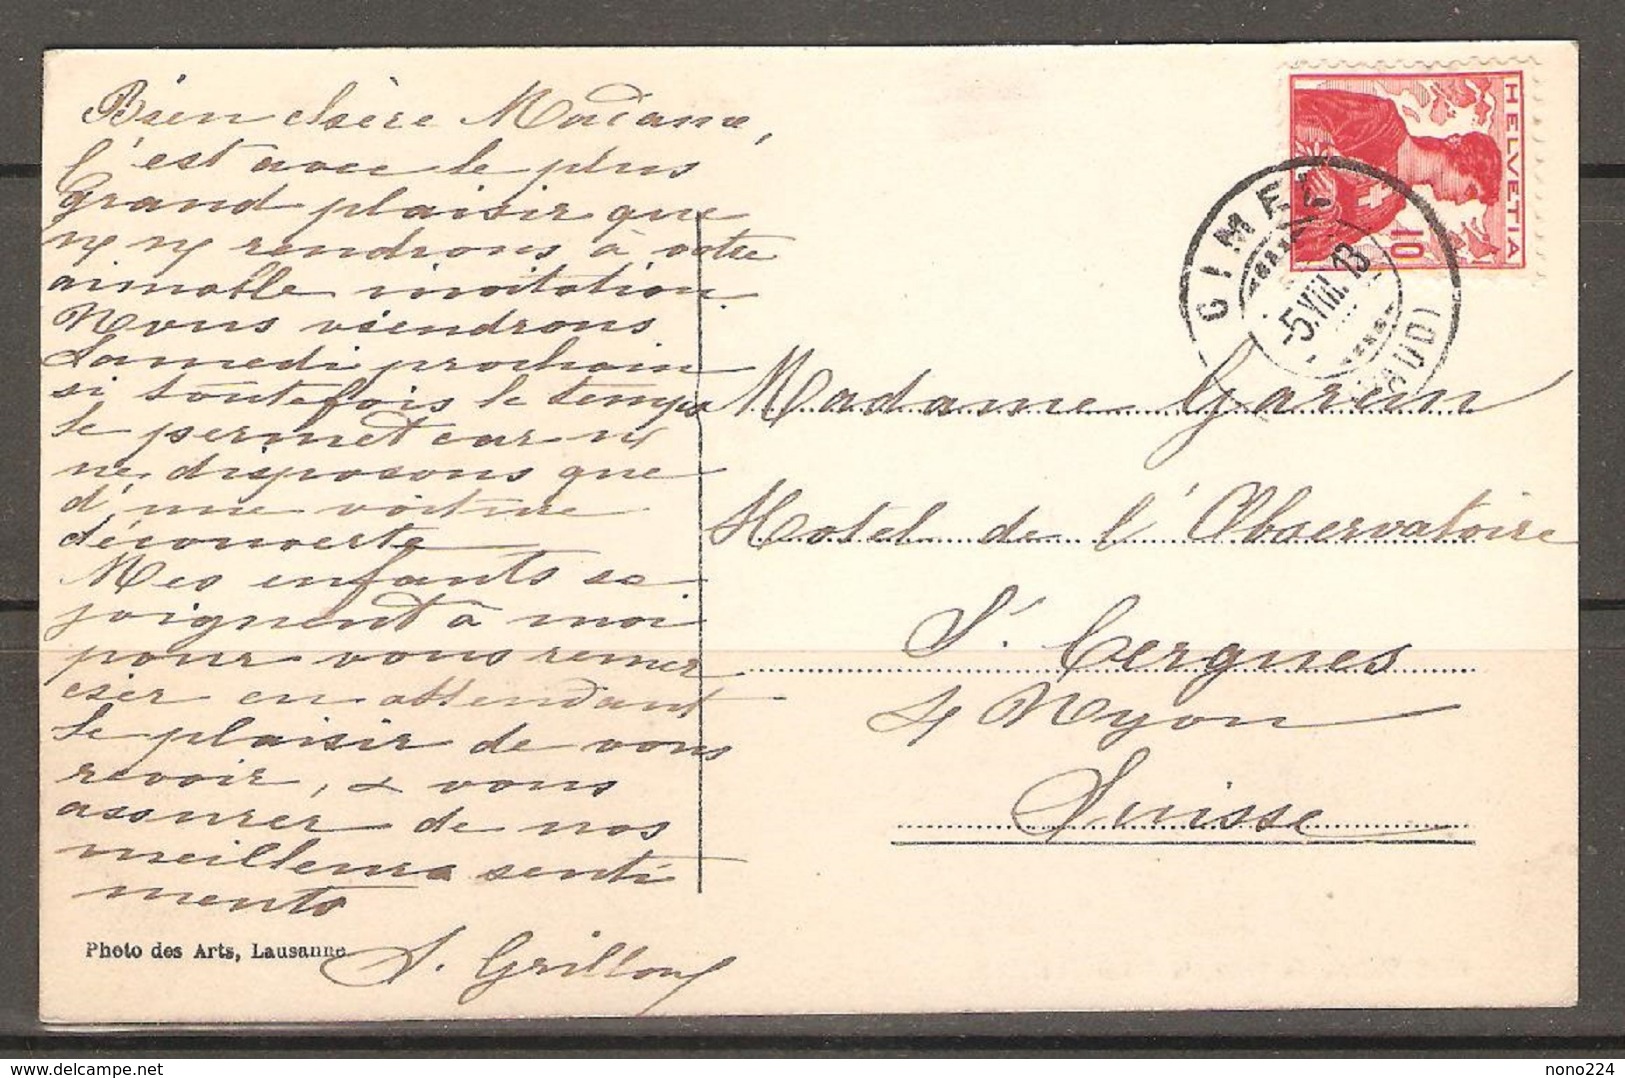 Bien chère Madame,
c'est avec le plus
grand plaisir que
ns ns rendrons à votre
aimable invitation.
Nous viendrons
Samedi prochain
si toutefois le temps
le permet car ns
ne disposons que
d'une voiture
découverte
Mes enfants se
joignent à moi
pour vous remer
cier en attendant
le plaisir de vous
revoir, & vous
assurer de nos
meilleurs senti
ments
S. Grilloud
Photo des Arts, Lausanne
HELVETIA
10
GIMEL
-5.VIII.13
(VAUD)
Madame Garein
Hotel de l'Observatoire
St. Cergues
s/ Nyon
Suisse
delcampe.net
nono224